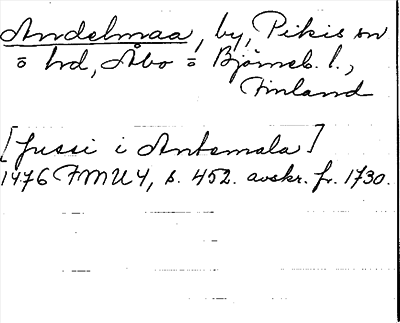 Andelmaa, by, Pikis sn
o hd, Åbo o Björneb. l.,
Finland
[Jussi i Antsmala]
1476 FMU 4, s. 452. avskr. fr. 1730.